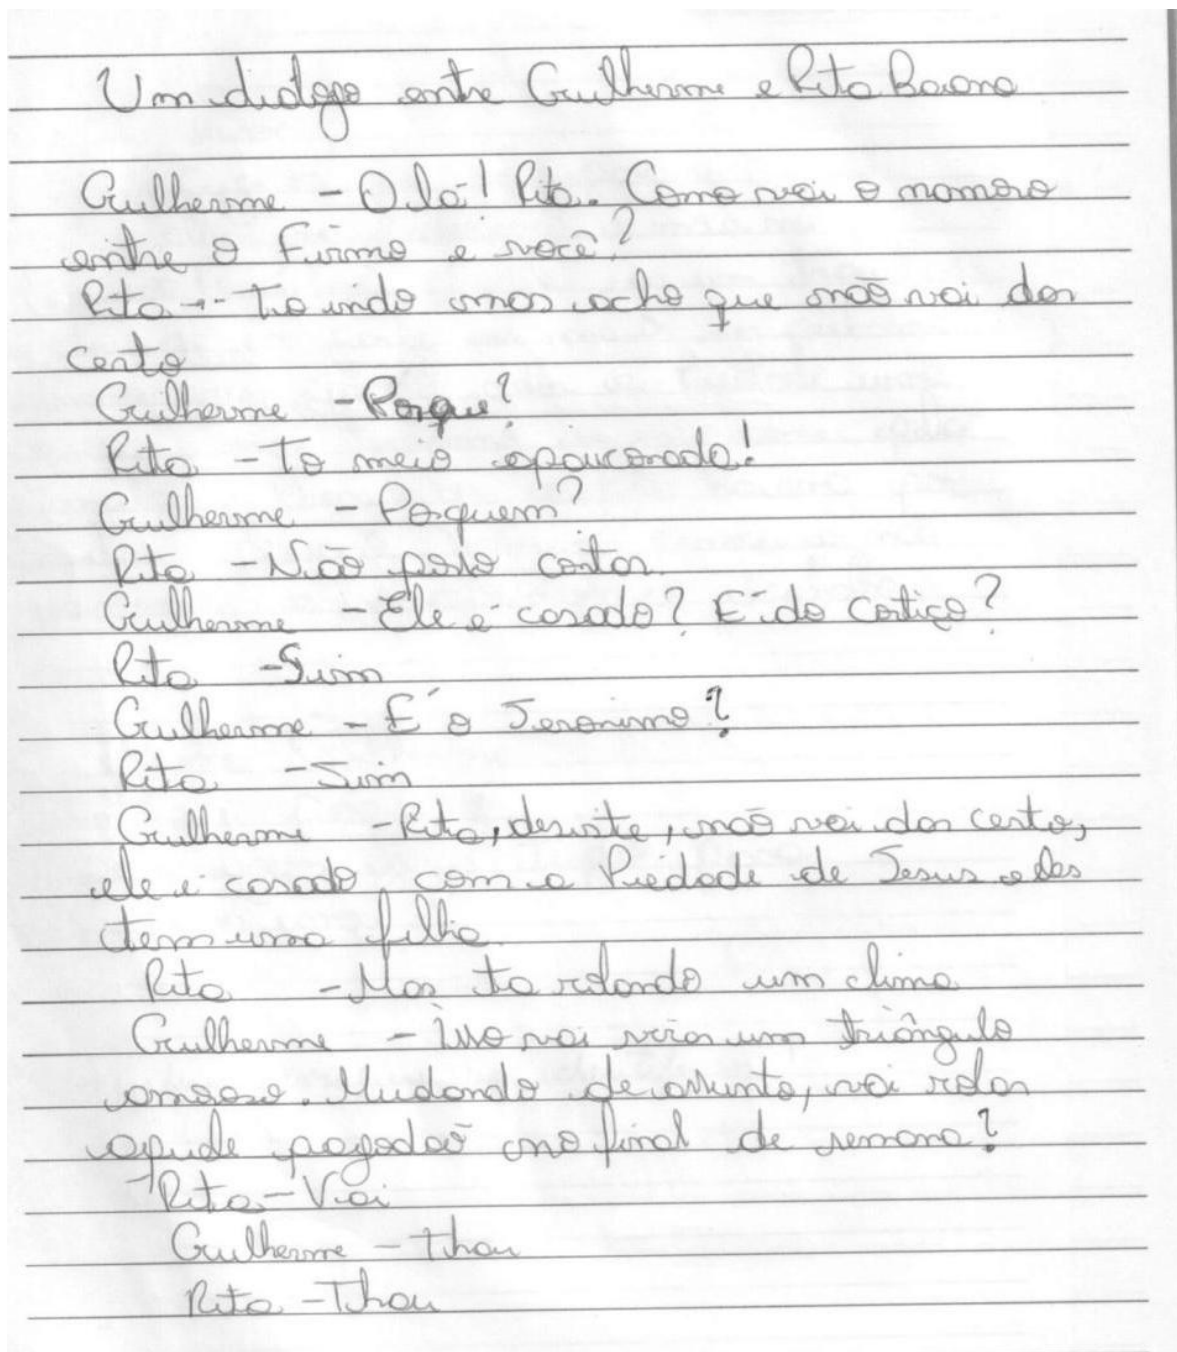 Um dialogo entre Guilherme e Rita Baiana
Guilherme - Olá! Rita. Como vai o namoro
entre o Firmo e você?
Rita - Ta indo mas acho que não vai dar
certo
Guilherme - Porque?
Rita - To meio apaixonada!
Guilherme - Porquem?
Rita - Não posso contar.
Guilherme - Ele é casado? É do Cortiço?
Rita - Sim
Guilherme - É o Jeronimo?
Rita - Sim
Guilherme - Rita, desiste, não vai dar certo,
ele é casado com a Piedade de Jesus e eles
tem uma filha.
Rita - Mas ta rolando um clima
Guilherme - Isso vai virar um triângulo
amoroso. Mudando de assunto, vai rolar
aquele pagodão no final de semana?
Rita - Vai
Guilherme - Thau
Rita - Thau